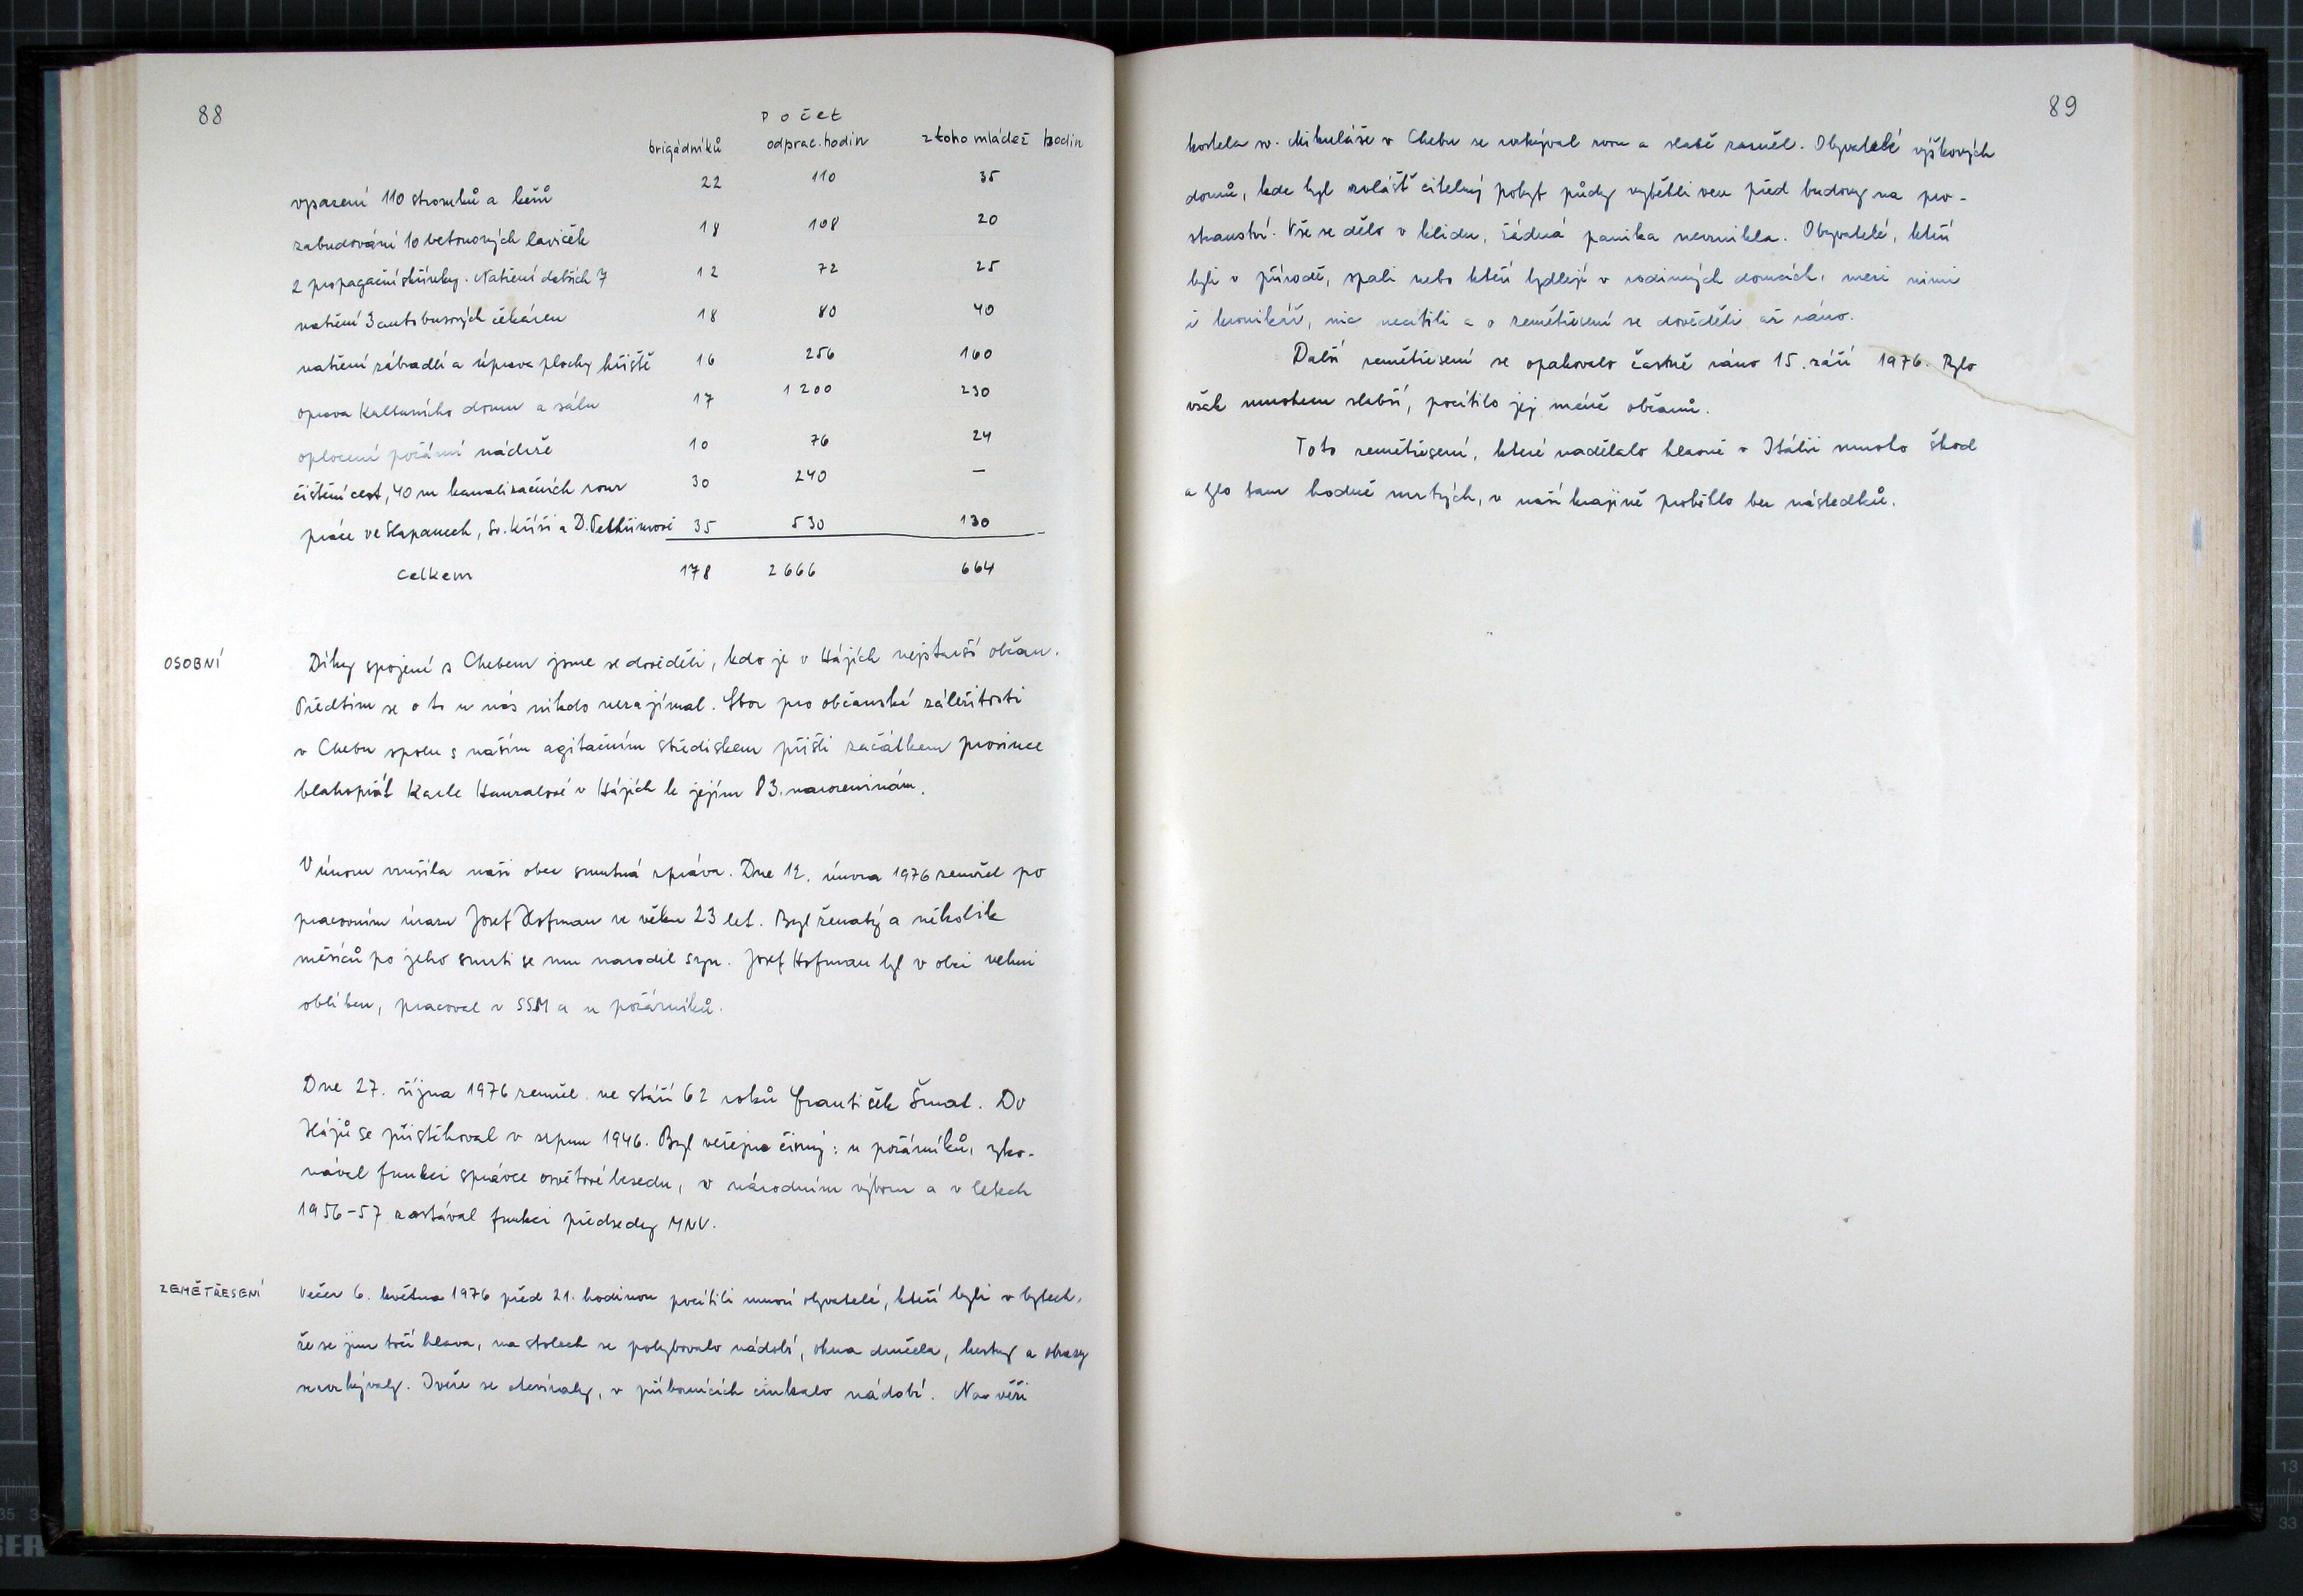 88
Počet
brigádníků odprac. hodin z toho mládež hodin
vysazení 110 stromků a keřů 22 110 35
zabudování 10 betonových laviček 18 108 20
2 propagační skříňky. Natření dalších 7 12 72 25
natření 3 autobusových čekáren 18 80 40
natření zábradlí a úprava plochy hřiště 16 256 160
oprava Kulturního domu a sálu 17 1 200 230
oplocení požární nádrže 10 76 24
čištění cest, 40 m kanalizačních rour 30 240 —
práce ve Slapanech, Sv. Kříži a D. Pelhřimově 35 530 130
celkem 178 2 666 664
OSOBNÍ
Díky spojení s Chebem jsme se dověděli, kdo je v Hájích nejstarší občan.
Předtím se o to u nás nikdo nezajímal. Sbor pro občanské záležitosti
v Chebu spolu s naším agitačním střediskem přišli začátkem prosince
blahopřát Karle Hanzalové v Hájích k jejím 83. narozeninám.
V únoru vzrušila naši obec smutná zpráva. Dne 12. února 1976 zemřel po
pracovním úrazu Josef Hofman ve věku 23 let. Byl ženatý a několik
měsíců po jeho smrti se mu narodil syn. Josef Hofman byl v obci velmi
oblíben, pracoval v SSM a u požárníků.
Dne 27. října 1976 zemřel ve stáří 62 roků František Šmat. Do
Hájů se přistěhoval v srpnu 1946. Byl veřejně činný: u požárníků, vyko-
nával funkci správce osvětové besedy, v národním výboru a v letech
1956-57 zastával funkci předsedy MNV.
ZEMĚTŘESENÍ
Večer 6. května 1976 před 21. hodinou pocítili mnozí obyvatelé, kteří byli v bytech,
že se jim točí hlava, na stolech se pohybovalo nádobí, okna drnčela, lustry a obrazy
se rozkývaly. Dveře se otevíraly, v příbornících cinkalo nádobí. Na věži
89
kostela sv. Mikuláše v Chebu se rozkýval zvon a slabě zazněl. Obyvatelé výškových
domů, kde byl zvlášť citelný pohyb půdy vyběhli ven před budovy na pro-
stranství. Vše se dělo v klidu, žádná panika nevznikla. Obyvatelé, kteří
byli v přírodě, spali nebo kteří bydlejí v rodinných domcích, mezi nimi
i kronikář, nic necítili a o zemětřesení se dověděli až ráno.
Další zemětřesení se opakovalo časně ráno 15. září 1976. Bylo
však mnohem slabší, pocítilo jej méně občanů.
Toto zemětřesení, které nadělalo hlavně v Itálii mnoho škod
a bylo tam hodně mrtvých, v naší krajině proběhlo bez následků.